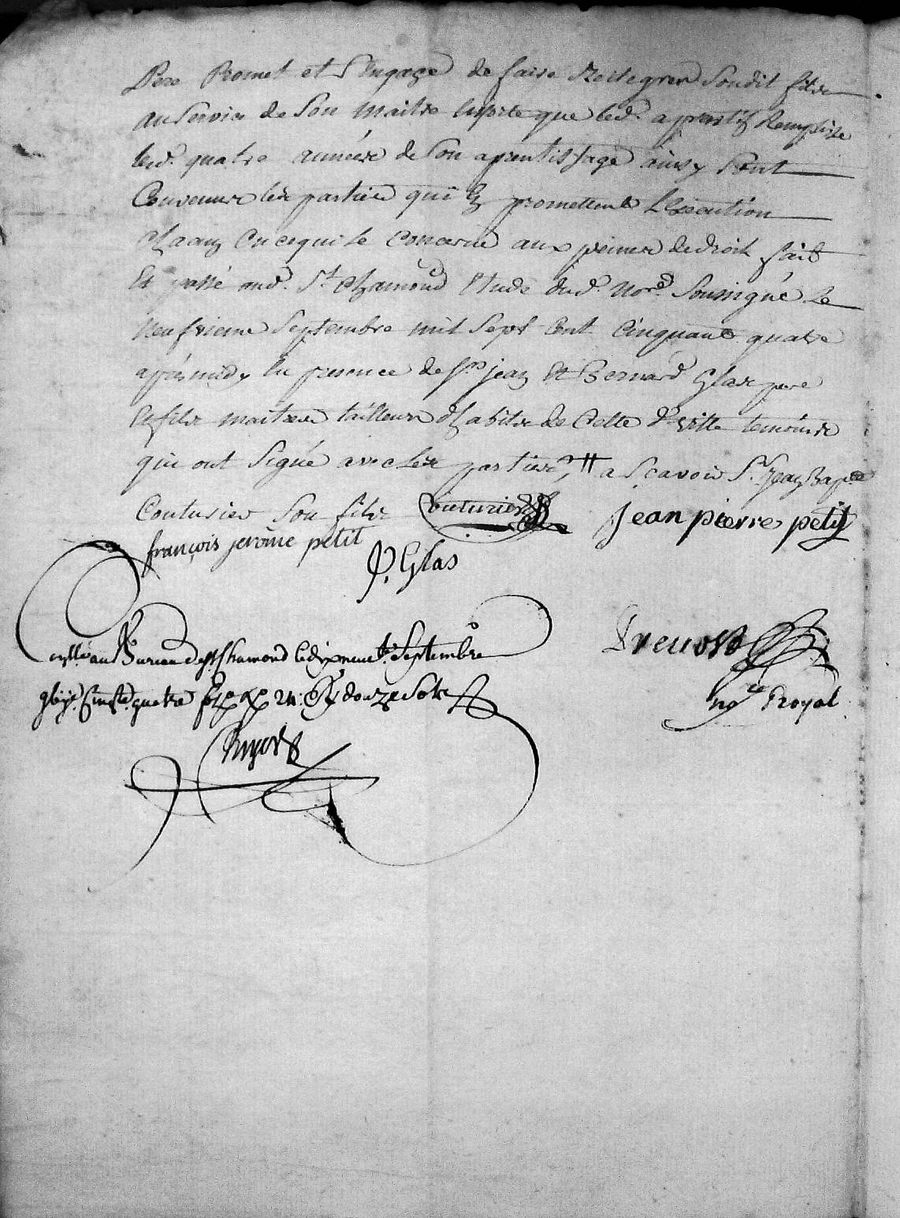 Pere Promet et S'Engage de faire Reintegrer Soudit fils
au Service de Son maitre Ensorte que led. aprentif Remplisse
lesd. quatre années de Son aprentissage ainsy Sont
Convenues les parties qui En promettent L'Execution
chacun En cequi le concerne aux peines de droit fait
Et passé aud. St. chamond Etude dud. Nore. Soussigné Le
Neufvieme Septembre mil Sept Cent Cinquante quatre
aprésmidy En presence de Srs. jean Et Bernard Glas pere
Et fils maitres tailleurs d'habits de Cette d. ville temoins
qui ont Signé avec les parties, a Scavoir Sr. Jean Bapte
Couturier Son fils Couturier jean pierre petit
françois jerome petit
J. Glas
Prevost
au Bureau de St Chamond le dix neuf Septembre
Cinqte. quatre douze sols
no.re Royal